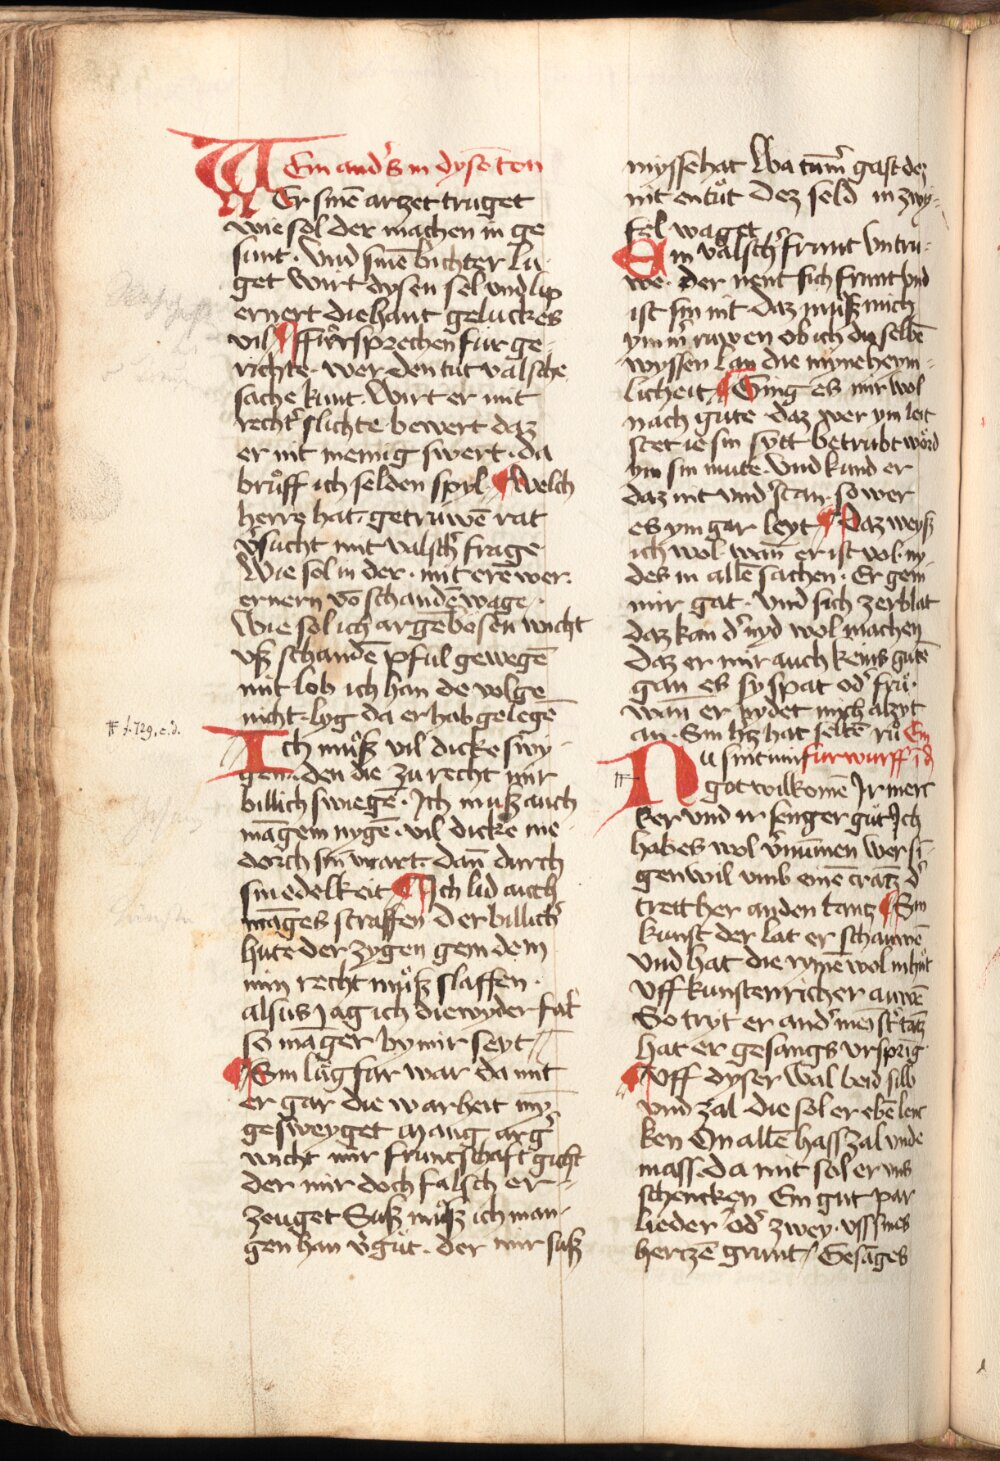 Ein and's in dysē ton
WEr sinē arzet truget
wie sol der machen in ge
sunt · Vnd sinē bichter lu-
get wirt dysen sel vnd lip
ernert die hant geluckes
vil ¶ ffürsprechen für ge-
richte · wer den tut valsche
sache kunt Wirt er mit
recht' slichte bewert daz
er nit meinig swert · da
bruͦff ich selden spyl · ¶ Welch
herre hat getruwē rat
v'sucht mit valsch' frage
Wie sol in der · mit erē wer
ernern vō schandē wage ·
Wie sol ich argē bosen wicht
vß schandē pful gewegē
mit lob ich han de volge
nicht · lyg da er hab gelegē
ff f. 729, c. d.
Ich muͦß vil dicke swy-
gen · den die zu recht mir
billich swiegē · Ich muß auch
māgem nygē · vil dicke me
dorch sin wart · dañ durch
sin edelkeit ¶ Ich lid auch
māges straffen Der billich'
hute der zygen gem dem
min recht muͦß slaffen ·
alsus jag ich die wyder fal
so māger by mir seyt
¶ Sin lüg für war da mit
er gar die warheit my
gesweyget Maug arg'
wicht mir fruntschaft gicht
der mir doch falsch er-
zeuget Suß muͦß ich man-
gen han v'guͦt · der mir suß
myssehat Wa tum' gast dez
nit entuͦt Dez seld in zwy-
fel waget
Ein valsch' frunt vntru-
we · der nent sich frunt vnd
ist sin nit daz muͦß mich
ym m' ruwen ob ich dē selbē
wyssen lan die myne heym-
licheit ¶ Ging es mir wol
nach gute daz wer ym leit
stet ie sin sytt betrubt woͤrd
ym sin mute · Vnd kund er
daz nit vnd'stan · so wer
es ym gar leyt ¶ Daz weyß
ich wol wañ er ist vol ny
des in allē sachen · Er gem
mir gat · vnd sich zerblat
daz kan d' nyd wol machen
daz er mir auch keins gutē
gan es sy spat od' fruͦ ·
wañ er nydet mich alzyt
an · Sin h'tz hat seltē ruͦ Ein
fürwurff
NU sint mir
got wilkomē Ir merc
ker vnd ir senger guͦt Ich
hab es wol v'nūmen wer si-
gen wil vmb einē cratz d'
trett her an den tantz ¶ Sin
kunst der lat er schauwē
Vnd hat die rymē wol in huͦt
Vff kunstenricher auwē
So tryt er and' meist' tātz
hat er gesangs vrsprīg
¶ Vff dyser wal beid silb
vnd zal · die sol er ebē lenc
ken On allē hass zal vnde
mass da mit sol er vns
schencken Ein gut par
lieder od' zwey · vss sines
hertzē grunt / Gesāges